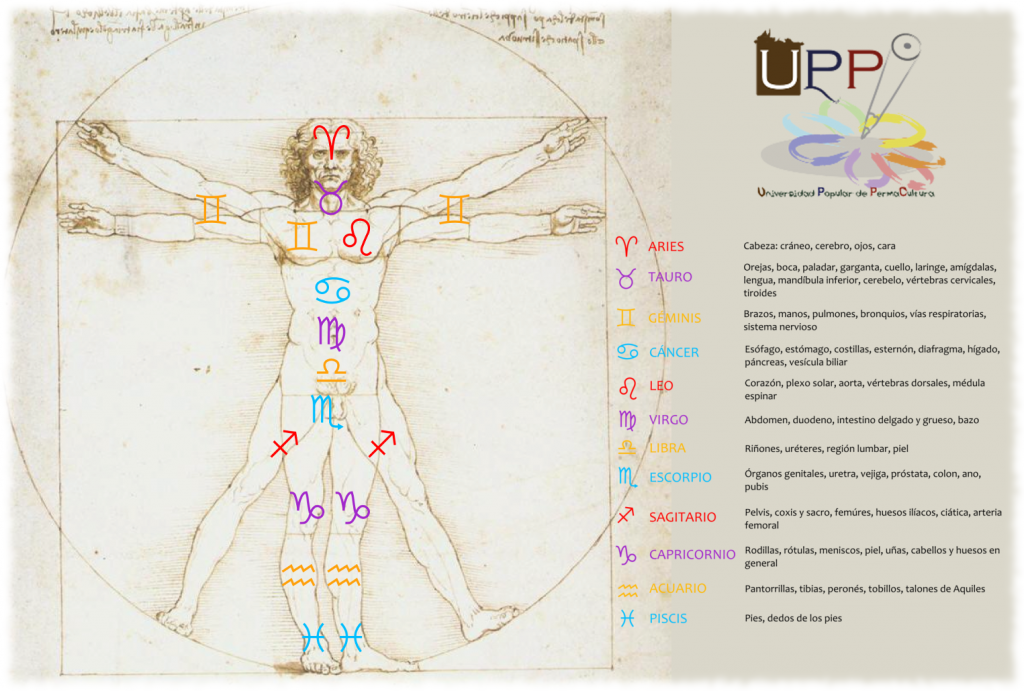 UPP
Universidad Popular de PermaCultura
♈ ARIES Cabeza: cráneo, cerebro, ojos, cara
♉ TAURO Orejas, boca, paladar, garganta, cuello, laringe, amígdalas,
lengua, mandíbula inferior, cerebelo, vértebras cervicales,
tiroides
♊ GÉMINIS Brazos, manos, pulmones, bronquios, vías respiratorias,
sistema nervioso
♋ CÁNCER Esófago, estómago, costillas, esternón, diafragma, hígado,
páncreas, vesícula biliar
♌ LEO Corazón, plexo solar, aorta, vértebras dorsales, médula
espinar
♍ VIRGO Abdomen, duodeno, intestino delgado y grueso, bazo
♎ LIBRA Riñones, uréteres, región lumbar, piel
♏ ESCORPIO Órganos genitales, uretra, vejiga, próstata, colon, ano,
pubis
♐ SAGITARIO Pelvis, coxis y sacro, femúres, huesos ilíacos, ciática, arteria
femoral
♑ CAPRICORNIO Rodillas, rótulas, meniscos, piel, uñas, cabellos y huesos en
general
♒ ACUARIO Pantorrillas, tibias, peronés, tobillos, talones de Aquiles
♓ PISCIS Pies, dedos de los pies